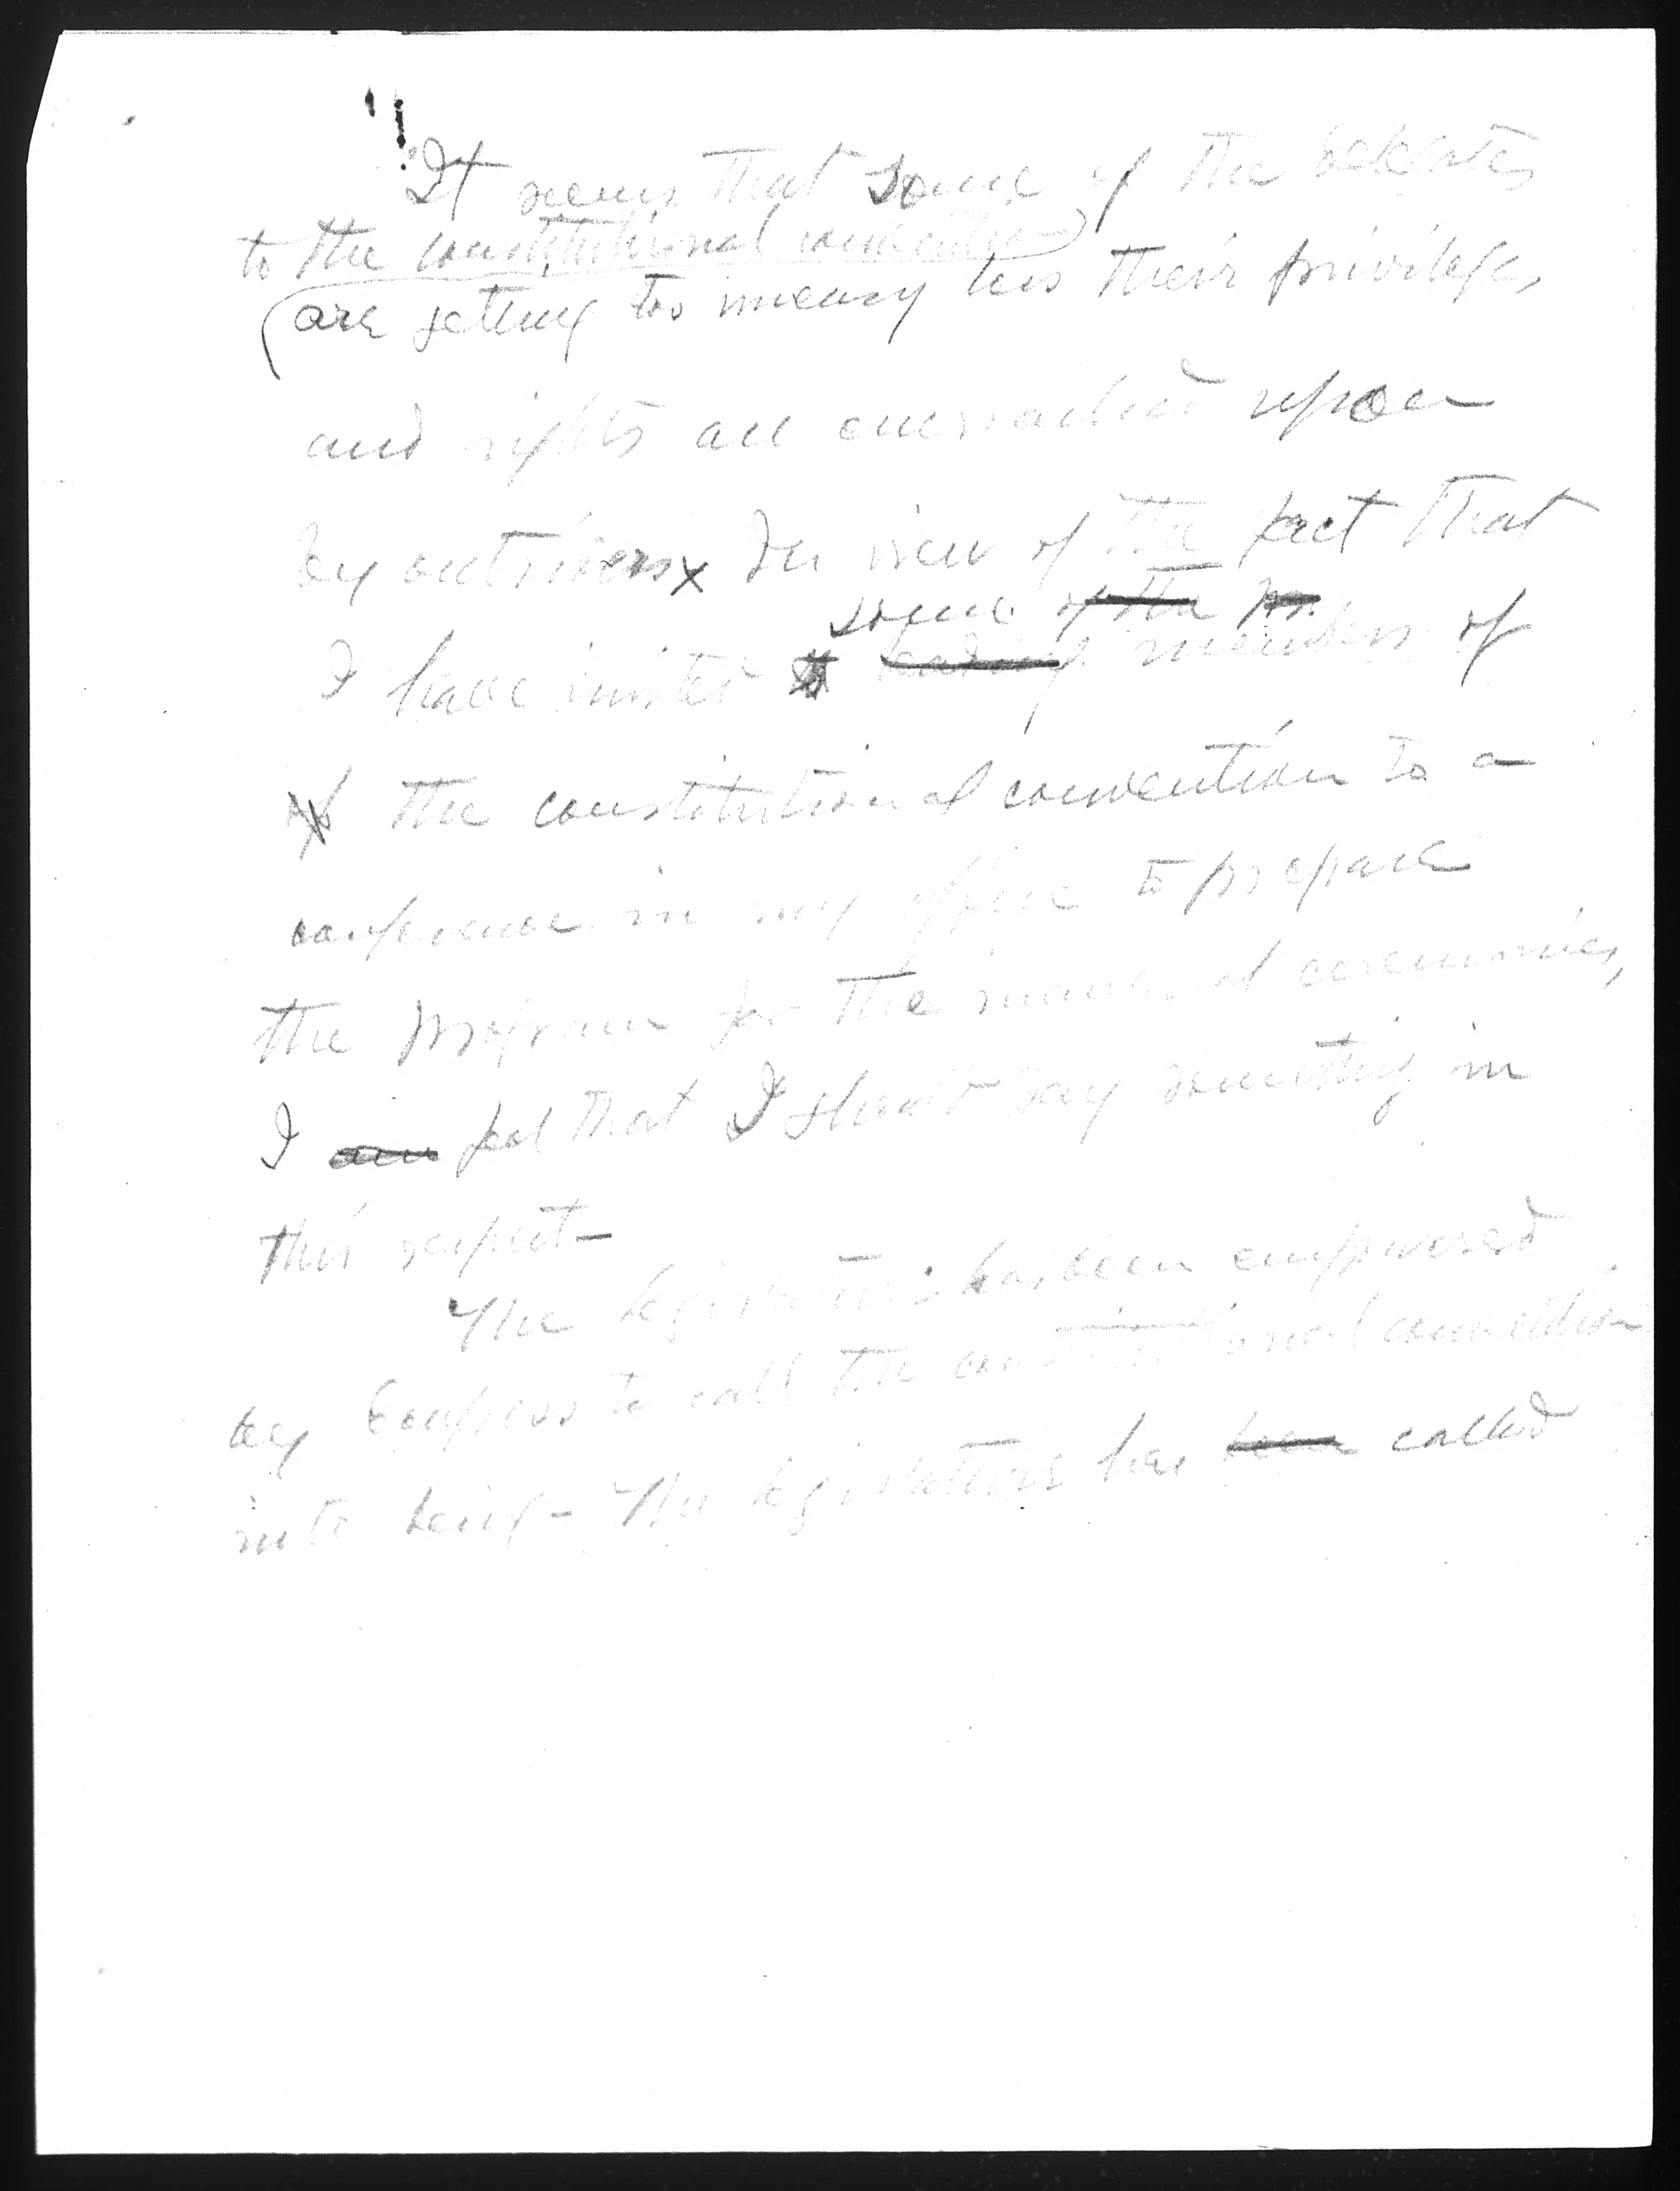 "It seems that some of the delegates
to the constitutional convention
are getting too uneasy less their privileges
and rights are encroached upon
by outsiders x In view of the fact that
some of the
I have invited leading members of
of the constitutional convention to a
conference in my office to prepare
the program for the inaugural ceremonies,
I am feel that I should say something in
this respect –
The legislature has been empowered
by Congress to call the constitutional convention
into being – The legislature has been called